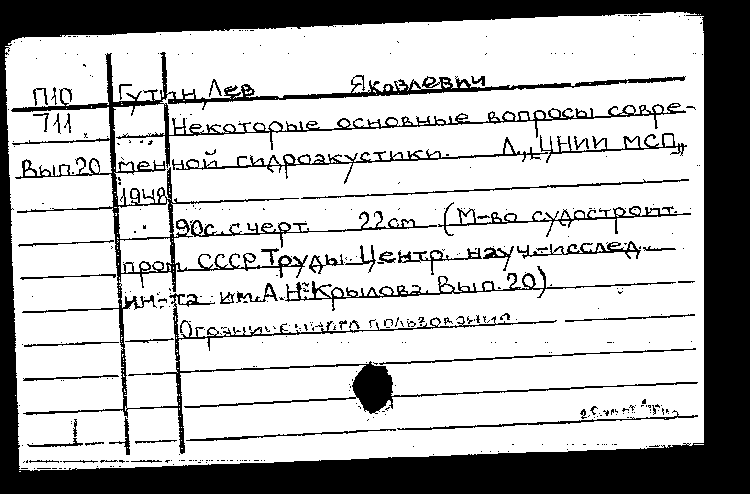 П10 Гутин, Лев Яковлевич
711 Некоторые основные вопросы совре-
Вып.20 менной гидроакустики. Л., "ЦНИИ МСП",
1948.
90с. с черт. 22cm (М-во судостроит.
пром. СССР. Труды Центр. науч.-исслед.
ин-та им. А.Н. Крылова. Вып. 20).
Ограниченного пользования
1